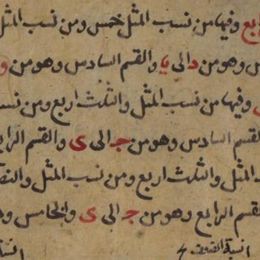 ـابع وفيها من نسب المثل خمس ومن نسب المثل
ـس وهو من د الى يا والقسم السادس وهو من و
وفيها من نسب المثل والثلث اربع ومن نسـ
القسم السادس وهو من ج الى ى والقسم الرابـ
المثل والثلث اربع ومن نسب المثل والنصـ
القسم الرابع وهو من ج الى ى والخامس وهـ
انسبة